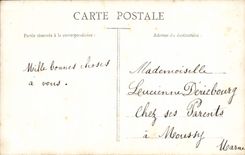 CARTE POSTALE
Partie réservée à la correspondance.
Adresse du destinataire.
Mille bonnes choses
à vous.
Mademoiselle
Lucienne Dériebourg
Chez ses Parents
à Moussy
Marne